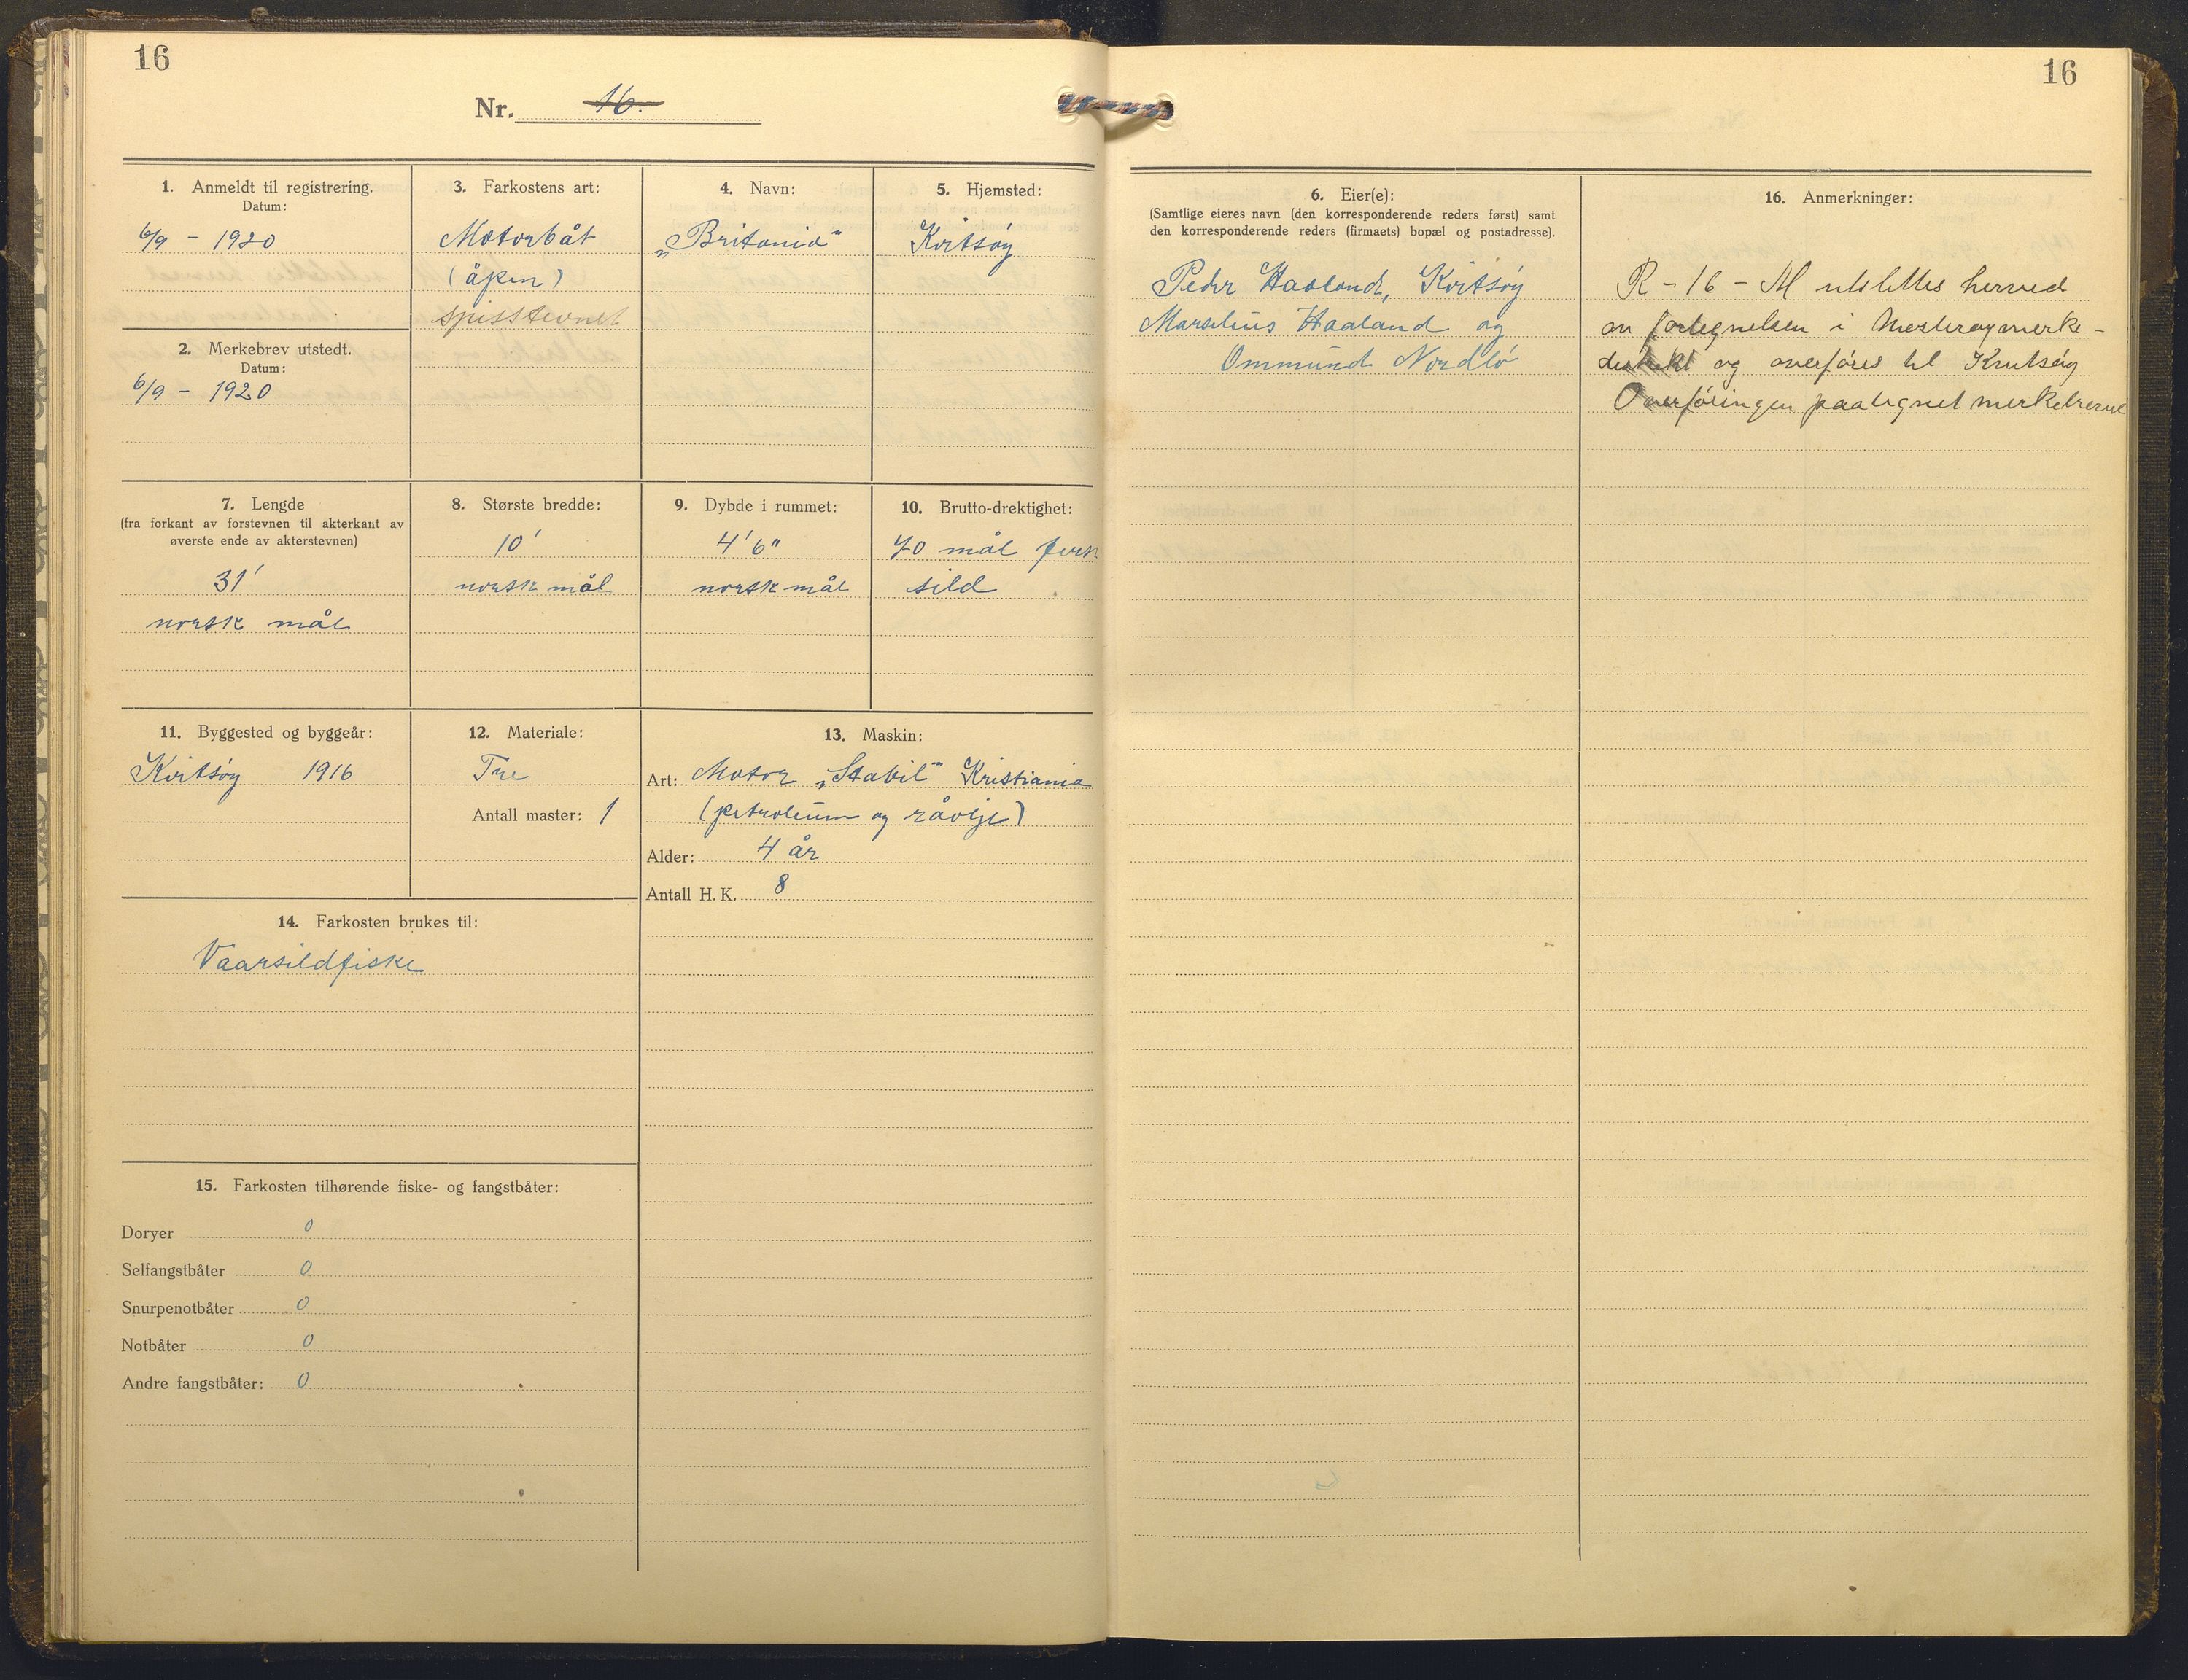 16
Nr. 16.
1. Anmeldt til registrering.
Datum:
6/9 - 1920
2. Merkebrev utstedt.
Datum:
6/9 - 1920
3. Farkostens art:
Motorbåt
(åpen)
spisstevnet
4. Navn:
„Britania"
5. Hjemsted:
Kvitsøy
7. Lengde
(fra forkant av forstevnen til akterkant av
øverste ende av akterstevnen)
31'
norsk mål
8. Største bredde:
10'
norsk mål
9. Dybde i rummet:
4'6"
norsk mål
10. Brutto-drektighet:
70 mål fersk
sild
11. Byggested og byggeår:
Kvitsøy 1916
12. Materiale:
Tre
Antall master: 1
13. Maskin:
Art: Motor „Stabil" Kristiania
(petroleum og råolje)
Alder: 4 år
Antall H. K. 8
14. Farkosten brukes til:
Vaarsildfiske
15. Farkosten tilhørende fiske- og fangstbåter:
Doryer 0
Selfangstbåter 0
Snurpenotbåter 0
Notbåter 0
Andre fangstbåter: 0
16
6. Eier(e):
(Samtlige eieres navn (den korresponderende reders først) samt
den korresponderende reders (firmaets) bopæl og postadresse).
Peder Haaland, Kvitsøy
Marselius Haaland og
Ommund Nordbø
16. Anmerkninger:
R - 16 - M utslettes herved
av fortegnelsen i Mosterøy merke-
distrikt og overføres til Kvitsøy
Overføringen paategnet merkebrevet